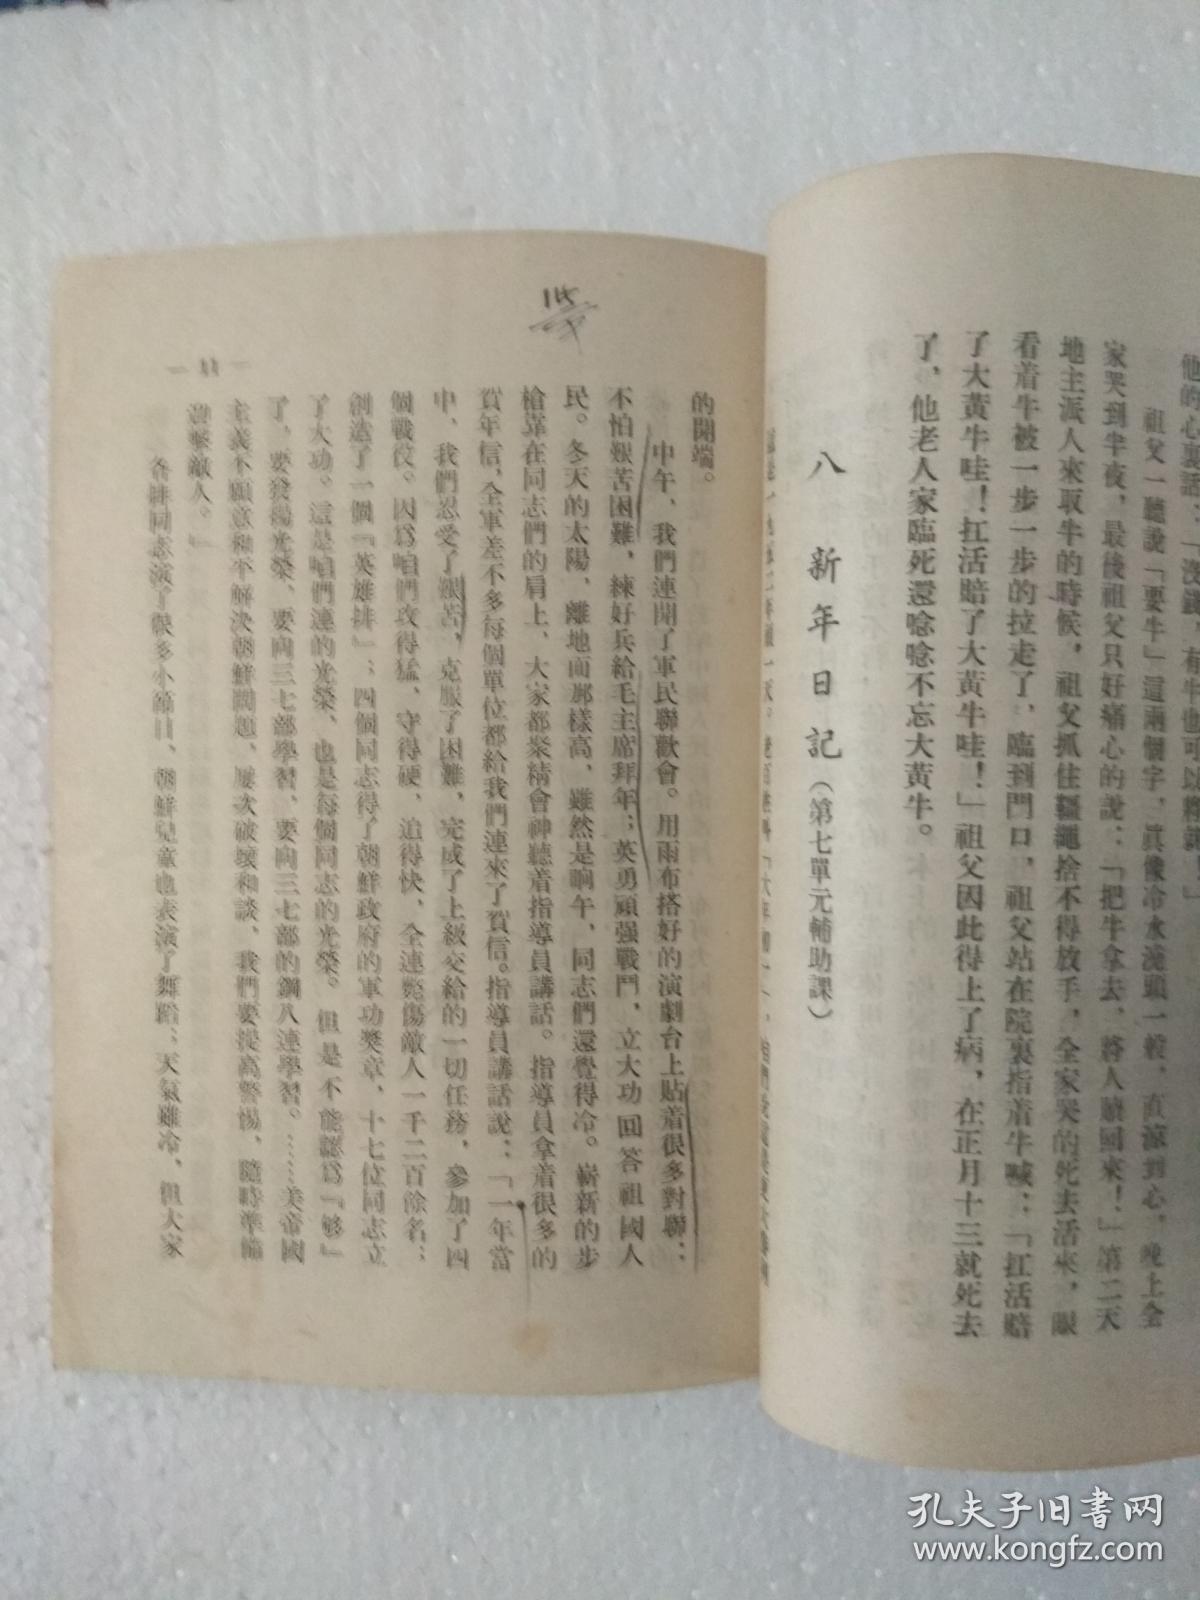 他的心裏話：
祖父一聽說「要牛」這兩個字，眞像冷水澆頭一般，直涼到心。晚上全
家哭到半夜，最後祖父只好痛心的說：「把牛拿去，將人贖回來！」第二天
地主派人來取牛的時候，祖父抓住韁繩捨不得放手，全家哭的死去活來，眼
看着牛被一步一步的拉走了，臨到門口，祖父站在院裏指着牛喊：「扛活賠
了大黃牛哇！扛活賠了大黃牛哇！」祖父因此得上了病，在正月十三就死去
了，他老人家臨死還唸唸不忘大黃牛。
八　新年日記（第七單元輔助課）
的開端。
中午，我們連開了軍民聯歡會。用雨布搭好的演劇台上貼着很多對聯：
不怕艱苦困難，練好兵給毛主席拜年；英勇頑强戰鬥，立大功回答祖國人
民。冬天的太陽，離地面那樣高，雖然是晌午，同志們還覺得冷。嶄新的步
槍靠在同志們的肩上，大家都聚精會神聽着指導員講話。指導員拿着很多的
賀年信，全軍差不多每個單位都給我們連來了賀信。指導員講話說：「一年當
中，我們忍受了艱苦，克服了困難，完成了上級交給的一切任務，參加了四
個戰役。因爲咱們攻得猛、守得硬、追得快，全連斃傷敵人一千二百餘名；
創造了一個「英雄排」；四個同志得了朝鮮政府的軍功獎章，十七位同志立
了大功。這是咱們連的光榮，也是每個同志的光榮。但是不能認爲「够」
了，要發揚光榮，要向三七部學習，要向三七部的鋼八連學習。……美帝國
主義不願意和平解決朝鮮問題，屢次破壞和談，我們要提高警惕，隨時準備
襲擊敵人。」
各排同志演了很多小節目，朝鮮兒童也表演了舞蹈；天氣雖冷，但大家
孔夫子旧书网
www.kongfz.com